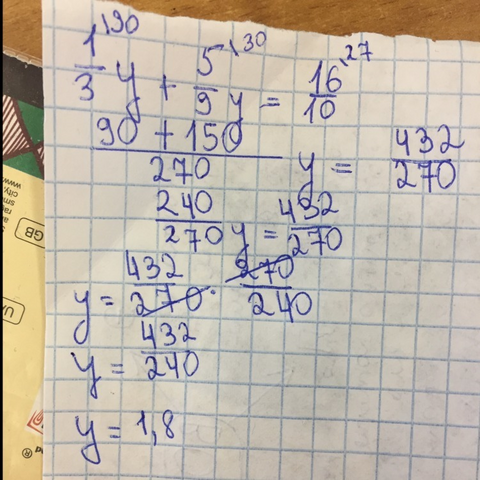 1/3 \90 y + 5/9 \30 y = 16/10 \27
90 + 150 / 270 y = 432/270
240/270 y = 432/270
y = 432/270 · 270/240
y = 432/240
y = 1,8
GB